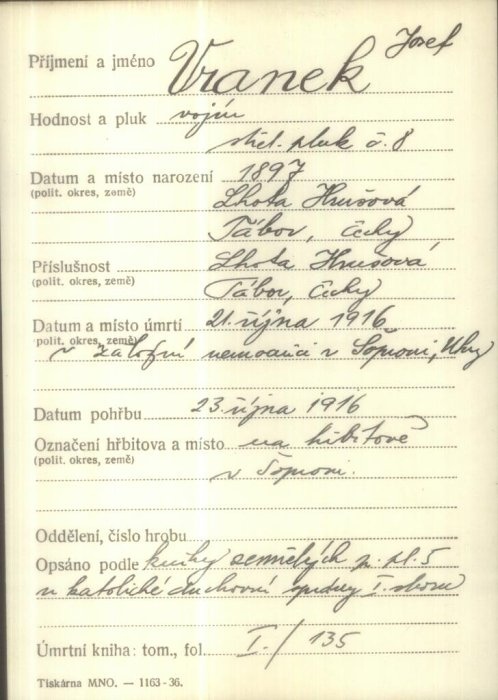 Josef
Příjmení a jméno Vranek
Hodnost a pluk vojín
střel. pluk č. 8
Datum a místo narození 1897
(polit. okres, země) Lhota Hrušová
Tábor, Čechy
Příslušnost Lhota Hrušová
(polit. okres, země) Tábor, Čechy
Datum a místo úmrtí 21. října 1916
polit. okres, země)
v záložní nemocnici v Šoproni, Uhry
Datum pohřbu 23. října 1916
Označení hřbitova a místo na hřbitově
(polit. okres, země) v Šoproni.
Oddělení, číslo hrobu
Opsáno podle knihy zemřelých p. pl. 5
u katolické duchovní správy I. sboru
Úmrtní kniha: tom., fol. I. / 135
Tiskárna MNO. — 1163-36.